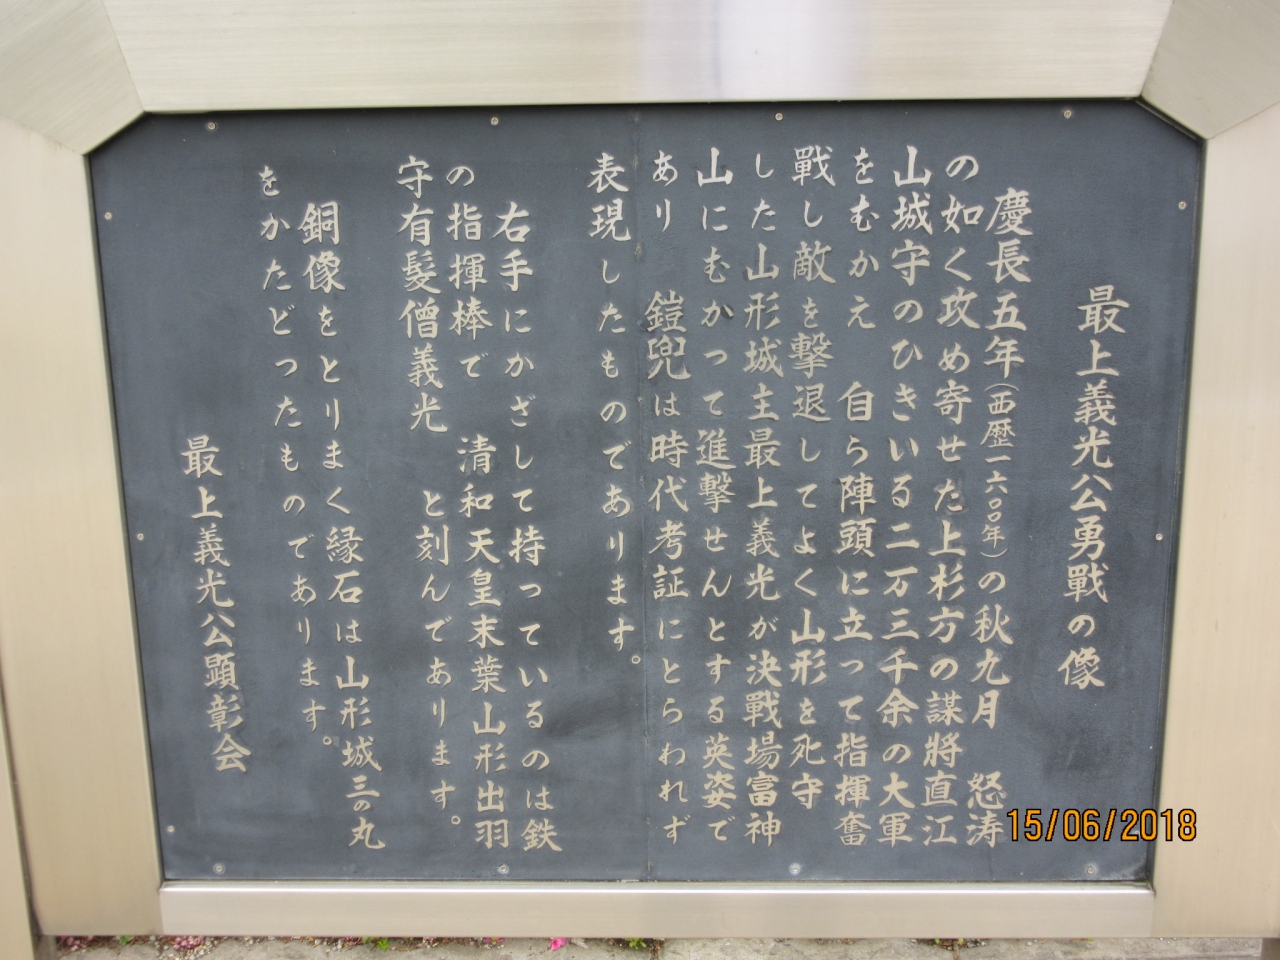 最上義光公勇戰の像
慶長五年（西歴一六〇〇年）の秋九月　怒涛
の如く攻め寄せた上杉方の謀將直江
山城守のひきいる二万三千余の大軍
をむかえ　自ら陣頭に立って指揮奮
戰し敵を撃退してよく山形を死守
した山形城主最上義光が決戰場富神
山にむかって進撃せんとする英姿で
あり　鎧兜は時代考証にとらわれず
表現したものであります。
右手にかざして持っているのは鉄
の指揮棒で　清和天皇末葉山形出羽
守有髮僧義光　と刻んであります。
銅像をとりまく縁石は山形城三の丸
をかたどったものであります。
最上義光公顕彰会
15/06/2018